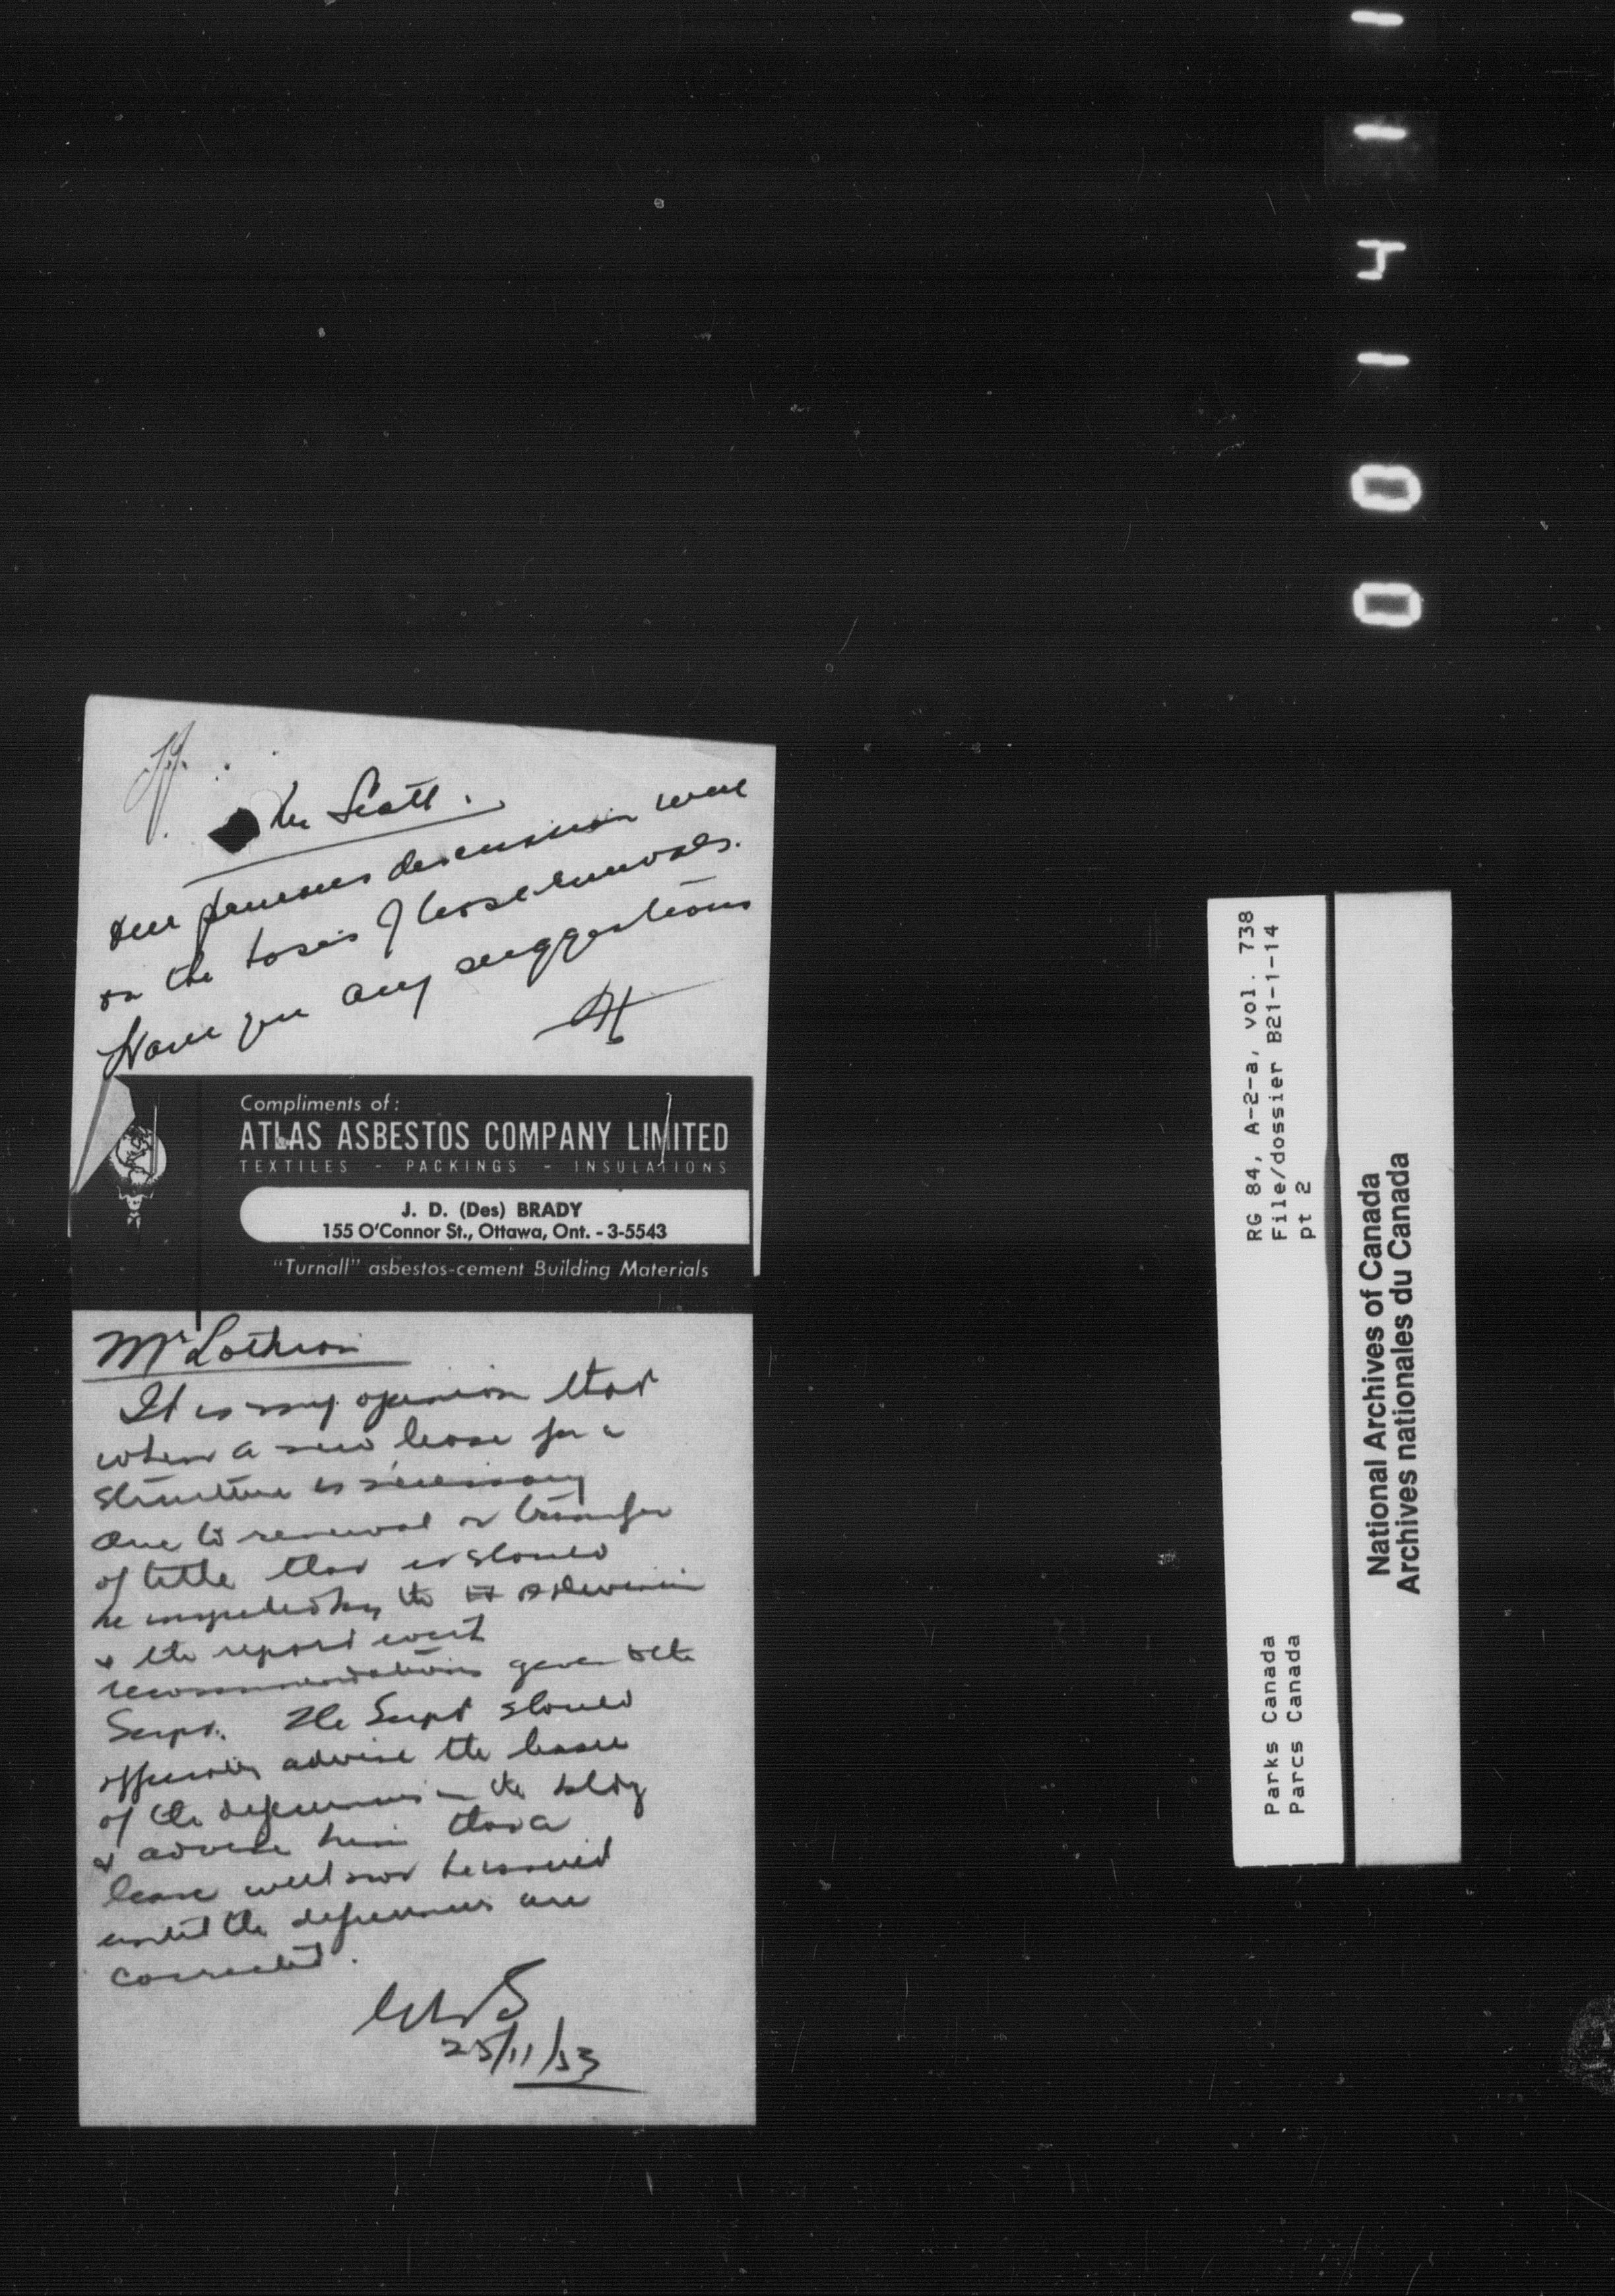 Mr Scott.
Our previous discussion were
on the basis of lease renewals.
Have you any suggestions
Compliments of:
ATLAS ASBESTOS COMPANY LIMITED
TEXTILES - PACKINGS - INSULATIONS
J. D. (Des) BRADY
155 O'Connor St., Ottawa, Ont. - 3-5543
"Turnall" asbestos-cement Building Materials
Mr Lothian
It is my opinion that
when a new lease for a
structure is necessary
due to renewal or transfer
of title that it should
be inspected by the
& the report with
recommendations given to the
Supt. The Supt should
advise the lessee
of the deficiencies in the bldg
& advise him that a
lease will not be issued
until the deficiencies are
corrected.
25/11/53
RG 84, A-2-a, vol. 738
File/dossier B21-1-14
pt 2
Parks Canada
Parcs Canada
National Archives of Canada
Archives nationales du Canada